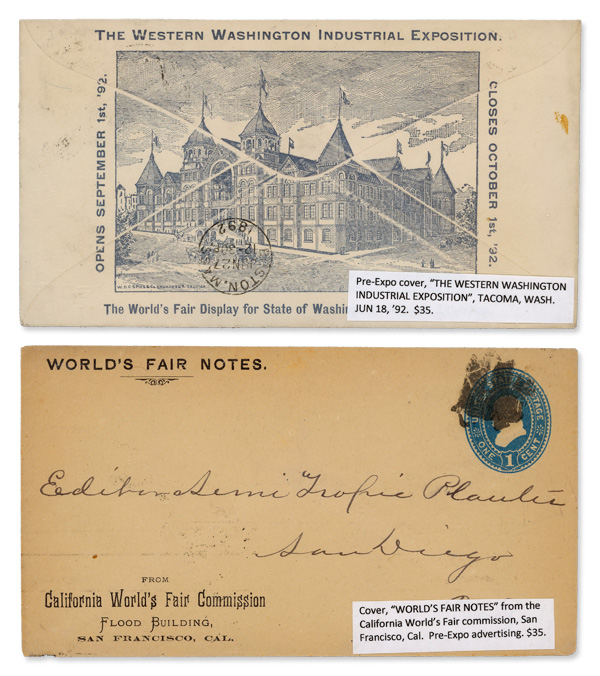 THE WESTERN WASHINGTON INDUSTRIAL EXPOSITION.
OPENS SEPTEMBER 1st, '92.
CLOSES OCTOBER 1st, '92.
1892
The World's Fair Display for State of Washin
Pre-Expo cover, "THE WESTERN WASHINGTON
INDUSTRIAL EXPOSITION", TACOMA, WASH.
JUN 18, '92. $35.
WORLD'S FAIR NOTES.
POSTAGE
ONE 1 CENT
Editor Semi Tropic Planter
San Diego
FROM
California World's Fair Commission
FLOOD BUILDING,
SAN FRANCISCO, CAL.
Cover, "WORLD'S FAIR NOTES" from the
California World's Fair commission, San
Francisco, Cal. Pre-Expo advertising. $35.